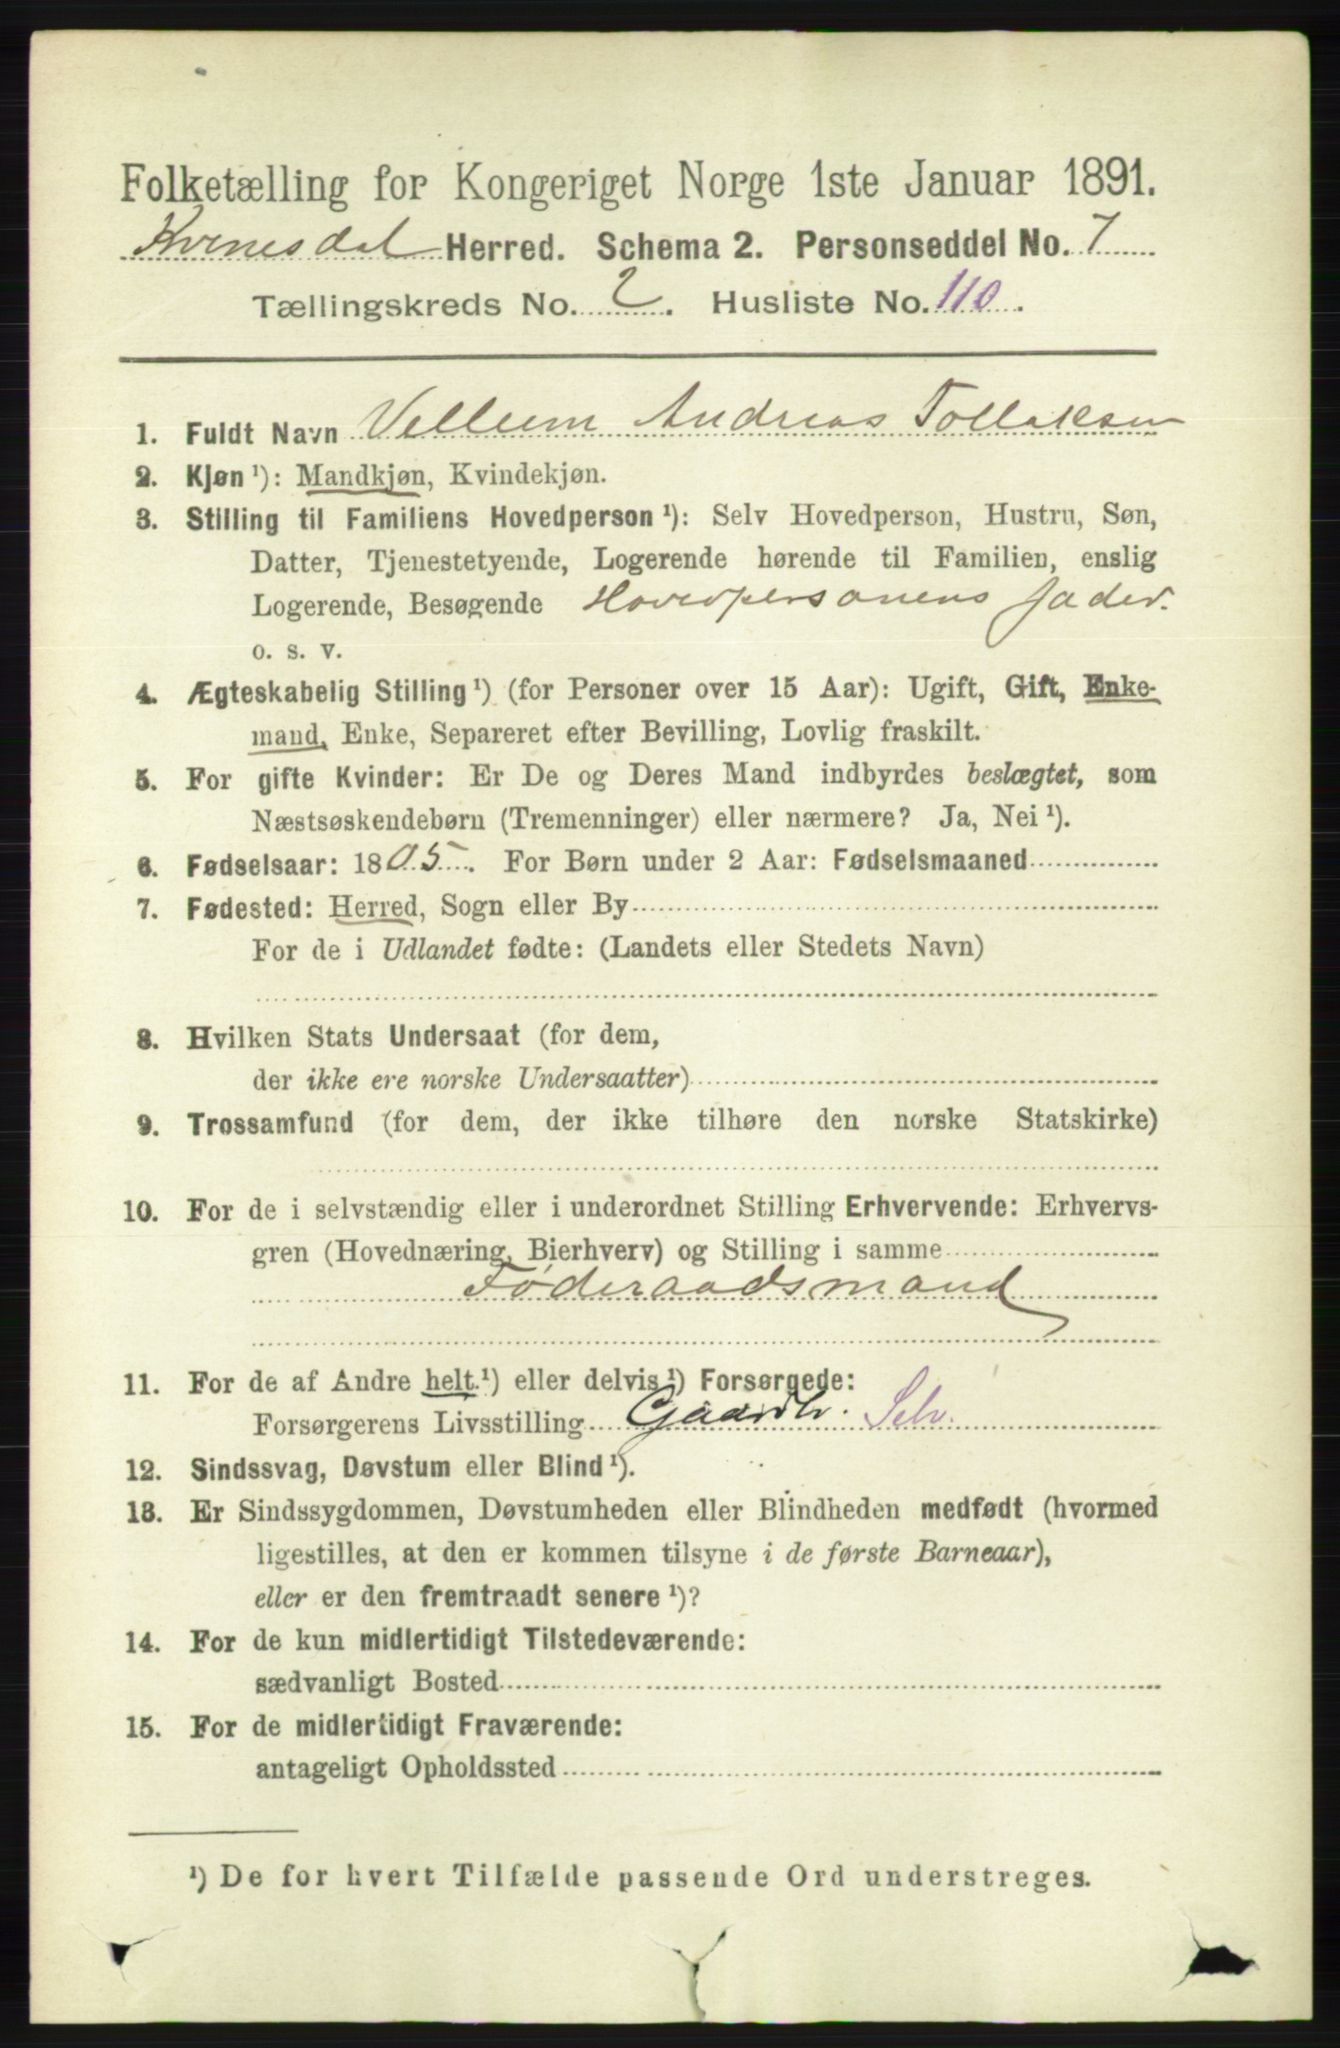 Folketælling for Kongeriget Norge 1ste Januar 1891.
Kvinesdal Herred. Schema 2. Personseddel No. 7
Tællingskreds No. 2. Husliste No. 110.
1. Fuldt Navn Velleum Andreas Tollaksen
2. Kjøn ¹): Mandkjøn, Kvindekjøn.
3. Stilling til Familiens Hovedperson ¹): Selv Hovedperson, Hustru, Søn,
Datter, Tjenestetyende, Logerende hørende til Familien, enslig
Logerende, Besøgende Hovedpersonens fader.
o. s. v.
4. Ægteskabelig Stilling ¹) (for Personer over 15 Aar): Ugift, Gift, Enke-
mand, Enke, Separeret efter Bevilling, Lovlig fraskilt.
5. For gifte Kvinder: Er De og Deres Mand indbyrdes beslægtet, som
Næstsøskendebørn (Tremenninger) eller nærmere? Ja, Nei ¹).
6. Fødselsaar: 1805. For Børn under 2 Aar: Fødselsmaaned
7. Fødested: Herred, Sogn eller By
For de i Udlandet fødte: (Landets eller Stedets Navn)
8. Hvilken Stats Undersaat (for dem,
der ikke ere norske Undersaatter)
9. Trossamfund (for dem, der ikke tilhøre den norske Statskirke)
10. For de i selvstændig eller i underordnet Stilling Erhvervende: Erhvervs-
gren (Hovednæring, Bierhverv) og Stilling i samme
Føderaadsmand
11. For de af Andre helt ¹) eller delvis ¹) Forsørgede:
Forsørgerens Livsstilling Gaardbr. Selv.
12. Sindssvag, Døvstum eller Blind ¹).
13. Er Sindssygdommen, Døvstumheden eller Blindheden medfødt (hvormed
ligestilles, at den er kommen tilsyne i de første Barneaar),
eller er den fremtraadt senere ¹)?
14. For de kun midlertidigt Tilstedeværende:
sædvanligt Bosted
15. For de midlertidigt Fraværende:
antageligt Opholdssted
¹) De for hvert Tilfælde passende Ord understreges.